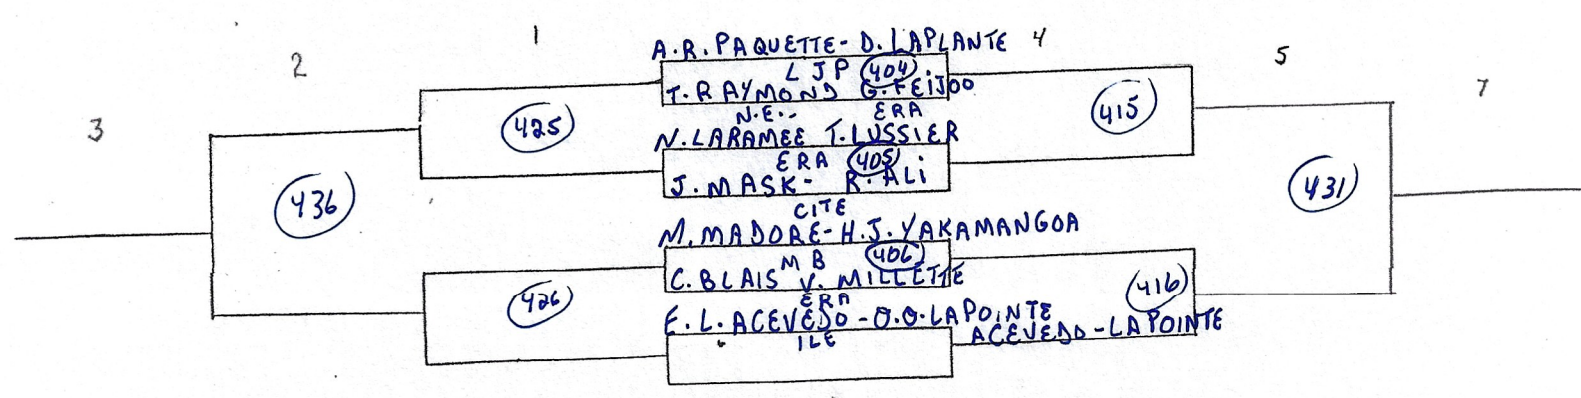 1
2
3
4
5
7
A.R. PAQUETTE - D. LAPLANTE
LJP 404
T. RAYMOND G. FEIJOO
N.E.. ERA
N. LARAMEE T. LUSSIER
ERA 405
J. MASK - R. ALI
CITE
M. MADORE - H.J. YAKAMANGOA
MB 406
C. BLAIS V. MILLETTE
ERA
E.L. ACEVEDO - O.O. LAPOINTE
ILE
ACEVEDO - LAPOINTE
425
436
426
415
431
416